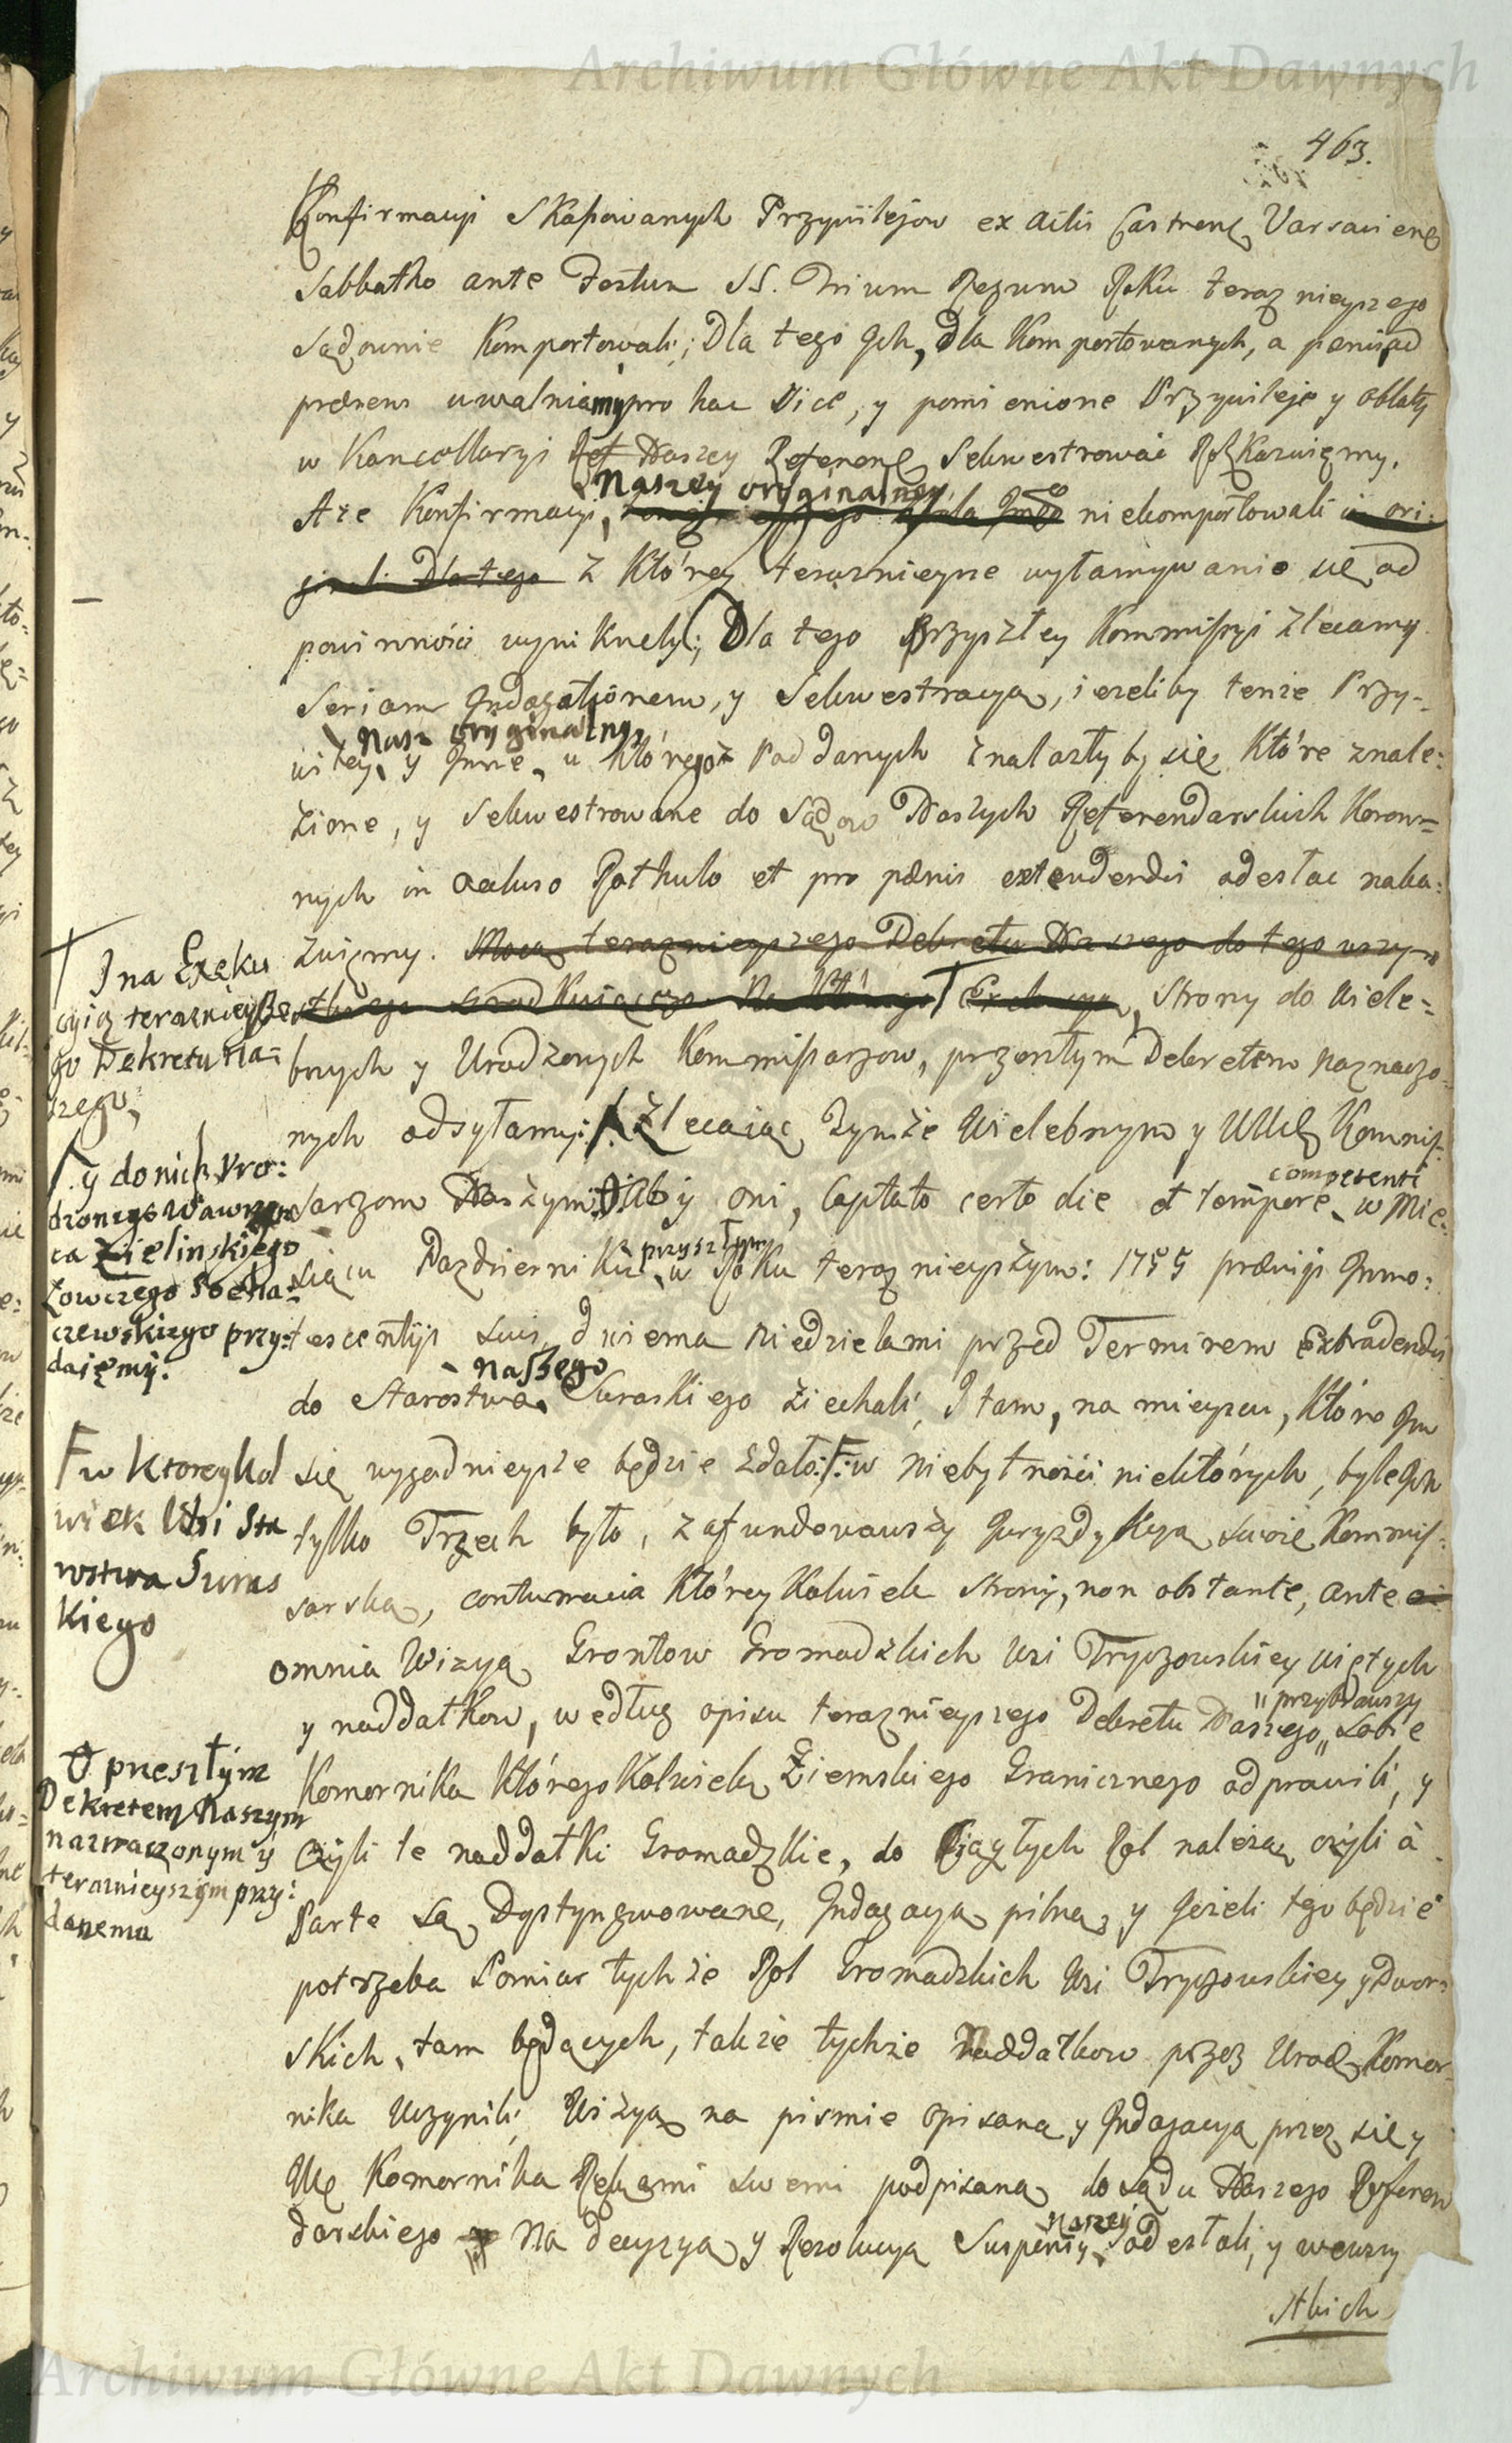 Archiwum Główne Akt Dawnych
463.
Konfirmacyi skassowanych Przywilejow ex Actis Castrens Varsaviens
Sabbatho ante Festum SS. Trium Regum Roku teraznieyszego
Sądownie Komportowali; Dla tego Ich, dla Komportowanych, a pænis ad
præsens uwalniamy pro hac vice, y pomienione Przywileje y oblaty
w Kancellaryi Ref Naszey Referens Sekwestrować Rozkazuięmy.
Naszey oryginalney
Aże Konfirmacyi, niekomportowali in ori:
Dla tego z Którey teraznieysze wyłamywanie się od
powinności wynikneły; Dla tego Przyszłey Kommissyi zlecamy
Seriam Indagationem, y Sekwestracyą, ieżeliby tenże Przy-
Nasz oryginalny
wiley, y Inne, u Któregoż Poddanych znalazły by się, Które znale:
zione, y Sekwestrowane do Sądow Naszych Referendarskich Koron-
nych in acluso Rothulo et pro pænis extendendis odesłac naka:
zuięmy. Mocą teraznieyszego Dekretu Naszego do tego wszy
Strony do Wiele=
bnych y Urodzonych Kommissarzow, przeszłym Dekretem naznaczo
nych odsyłamy: zlecaiąc Tymże Wielebnym y UUch Kommis
competenti
sarzom Naszym Aby oni, Captato certo die et tempore, w Mie:
przyszłym
siącu Pazdzierniku, w Roku teraznieyszym: 1755 præviji Inno:
tescentyi swis, dwiema Niedzielami przed Terminem Extradendis
Naszego
do Starostwa Suraskiego ziechali, I tam, na mieyscu, Które Im
się wygodnieysze będzie zdało: F: w Niebytności niektórych, byle Ich
tylko Trzech było, zafundowawszy Juryzdykcyą swoię Kommis:
sarską, contumacia Któreykolwiek Strony, non obstante, ante
omnia Wizyą Grontow Gromadzkich Wsi Tryczowskiey więtych
przybrawszy
y naddatkow, według opisu teraznieyszego Dekretu Naszego sobie
Komornika Któregokolwiek Ziemskiego Granicznego odprawili, y
czyli te naddatki Gromadzkie, do Ciągłych Rol należą, czyli à
Parte są Dystyngwowane, Indagacyą pilną, y Jeżeli tego będzie
potrzeba Pomiar tychże Rol Gromadzkich Wsi Tryczowskiey y Dwor=
skich, tam będących, także tychże Naddatkow przez Urodz Komor
nika Uczynili, Wizyą na pismie opisaną y Indagacyą przez się y
Komornika Rękami swemi podpisaną do Sądu Naszego Referen
Naszey
darskiego Na decyzyą y Rezolucyą Suspensy odesłali, y wewszy
stkich
I na Exeku
cyią teraznieysze
go Dekretu Na=
szego,
y do nich Vro:
dzonego Wawrzyn
ca Zielinskiego
Łowczego Socha=
czewskiego przy:
daięmy.
F w Ktoreykol
wiek Wsi Sta
rostwa Suras
kiego
przeszłym
Dekretem Naszym
naznaczonym y
teraznieyszym przy:
danemu
Archiwum Główne Akt Dawnych